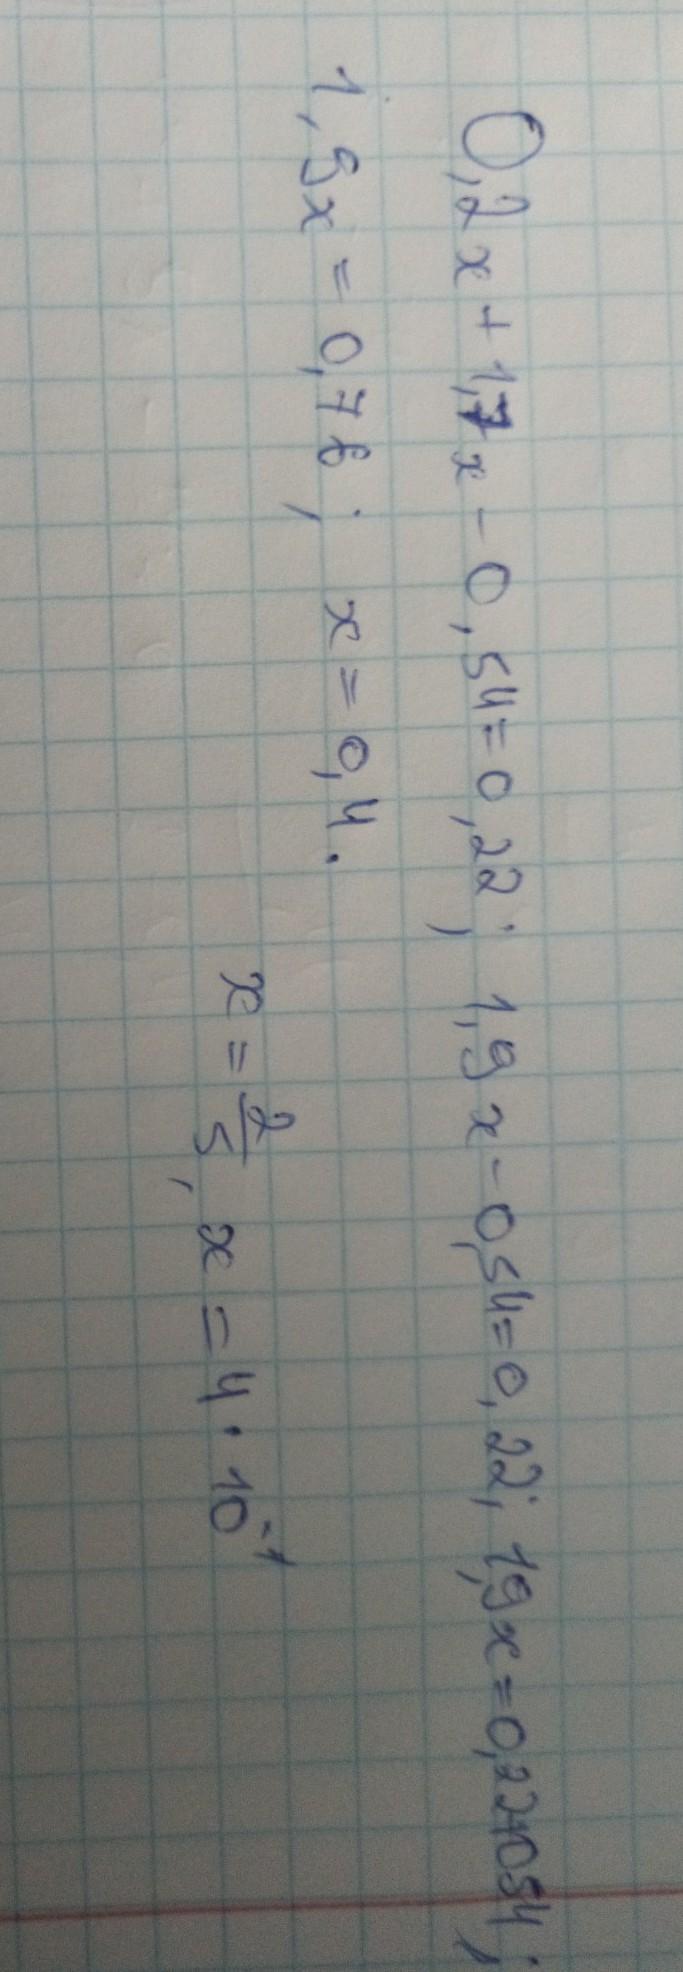 0,2x+1,7x-0,54=0,22; 1,9x-0,54=0,22; 1,9x=0,22+0,54;
1,9x=0,76; x=0,4.
x=2/5, x=4·10⁻¹